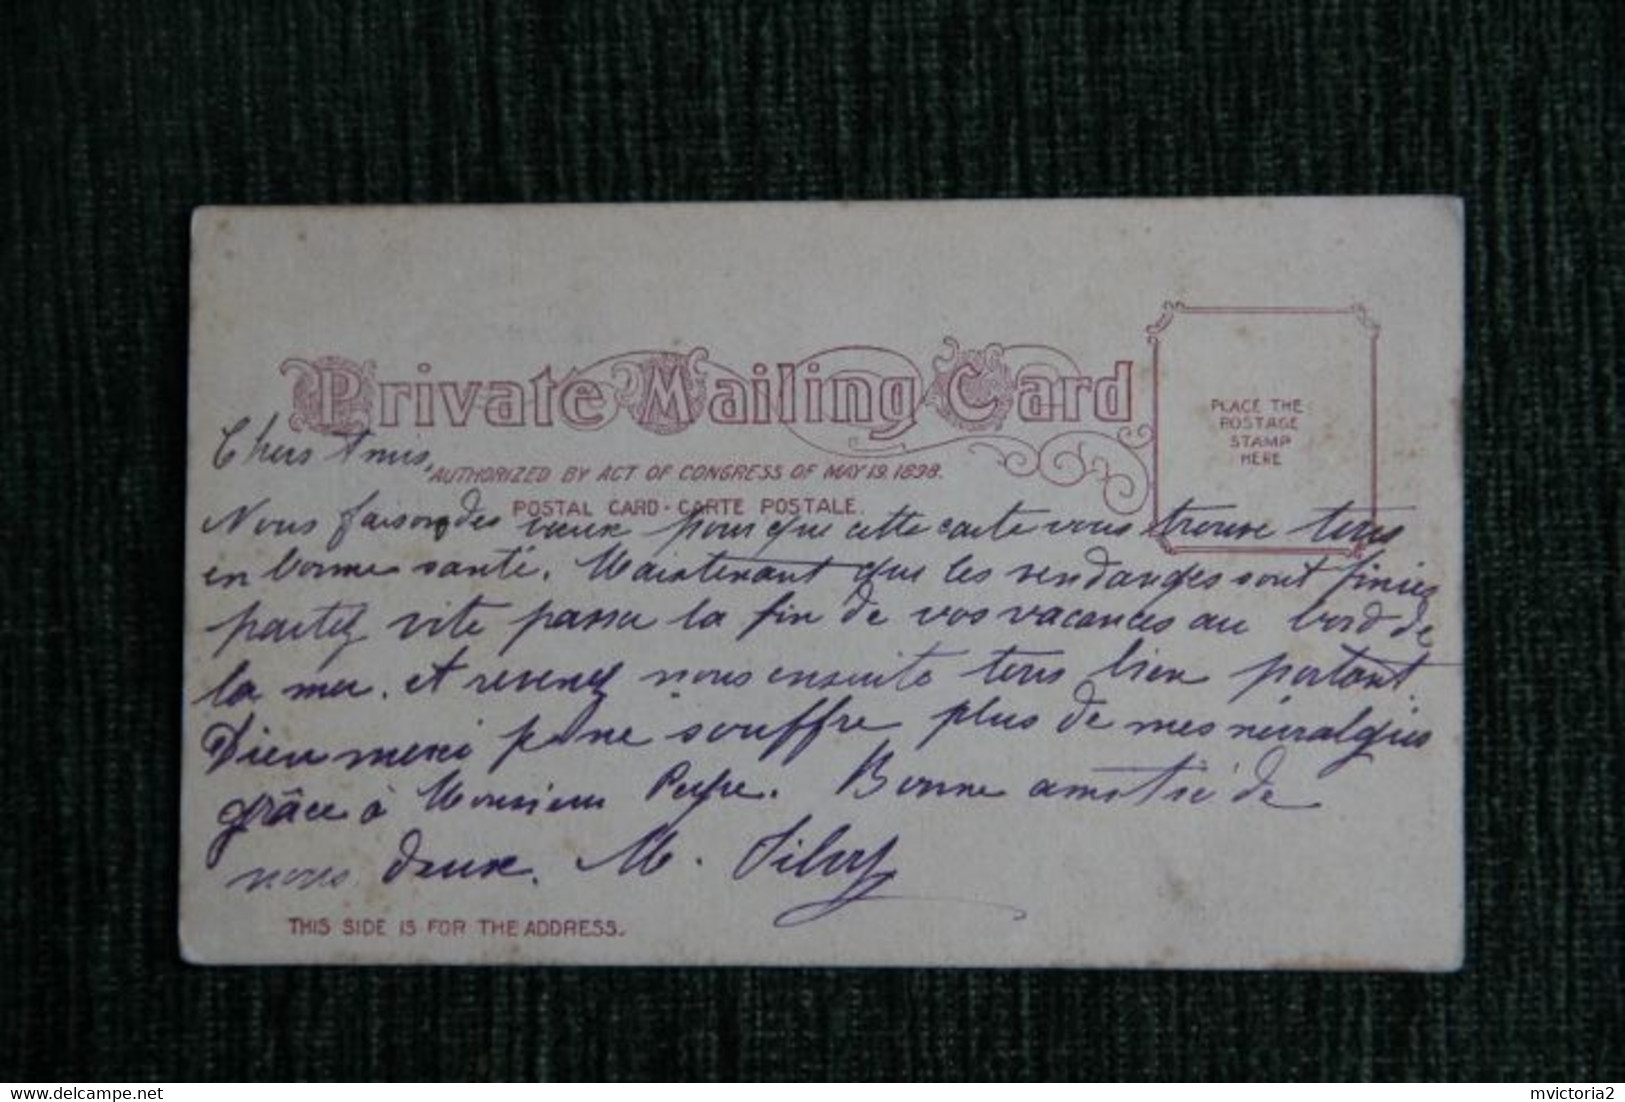 Private Mailing Card
PLACE THE
POSTAGE
STAMP
HERE
Chers Amis,
AUTHORIZED BY ACT OF CONGRESS OF MAY 19. 1898.
POSTAL CARD - CARTE POSTALE.
Nous faisons des vœux pour que cette carte vous trouve tous
en bonne santé. Maintenant que les vendanges sont finies
partez vite passer la fin de vos vacances au bord de
la mer. et revenez nous ensuite tous bien portant.
Dieu merci je ne souffre plus de mes névralgies
grâce à Monsieur. Bonne amitié de
nous deux. M.
THIS SIDE IS FOR THE ADDRESS.
mvictoria2